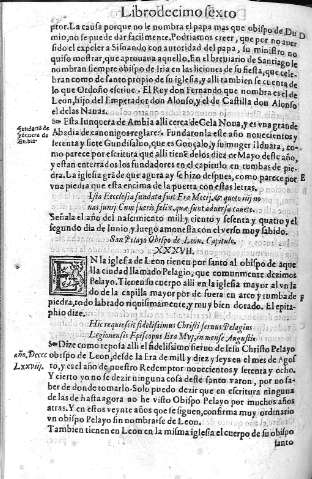 Libro decimo sexto
ptor. La causa porque no le nombra el papa mas que obispo de Du
mio, no se puede dar facilmente. Podriamos creer, que por no aver
sido el expeler a Sisnando con autoridad del papa, su ministro no
quiso mostrar, que aprovaua aquello. En el breuiario de Santiago le
nombran siempre obispo de Iria en las liciones de su fiesta, que cele-
bran como de santo propio de su iglesia, y alli tambien se cuenta de
lo que Ordoño escriue. El Rey don Fernando que nombra es el de
Leon, hijo del Emperador don Alonso, y el de Castilla don Alonso
el delas Nauas.
Esta Iunquera de Ambia alli cerca de Cela Noua, y es vna grande
Abadia de canonigos reglares. Fundaron la este año nouecientos y
setenta y siete Gundisaluo, que es Gonçalo, y su muger Ilduara, co-
mo parece por escritura que alli tienẽ delos diez de Mayo deste año,
y estan enterrados los fundadores en el capitulo en tumbas de pie-
dra. La iglesia grãde que agora ay se hizo despues, como parece por
vna piedra que esta encima de la puerta con estas letras.
Ista Ecclesia fundata fuit Era
Señala el año del nascimiento mil y ciento y sesenta y quatro y el
segundo dia de Iunio, y luego amonesta con el verso muy sabido.
San Pelayo Obispo de Leon. Capitulo.
XXXVII.
EN la iglesia de Leon tienen por santo al obispo de aque
lla ciudad llamado Pelagio, que comunmente dezimos
Pelayo. Tienen su cuerpo alli en la iglesia mayor al vn la
do de la capilla mayor por de fuera en arco y tumba de
piedra, todo labrado riquissimamente, y muy bien dorado. El epita-
phio dize.
Hic requiescit fidelissimus Christi seruus Pelagius
Legionensis Episcopus Era in mense Augusti.
Dize como reposa alli el fidelissimo sieruo de Iesu Christo Pelayo
año, Decc obispo de Leon, desde la Era de mill y diez y seys en el mes de Agos
Lxxviij. to, y es el año de nuestro Redemptor nouecientos y setenta y ocho.
Y cierto yo no se dezir ninguna cosa deste santo varon, por no sa-
ber de donde tomarlo. Solo puedo dezir que en escritura ninguna
de las de hasta agora no he visto Obispo Pelayo por muchos años
atras. Y en estos veynte años que se siguen, confirma muy ordinario
vn obispo Pelayo sin nombrarse de Leon.
Tambien tienen en Leon en la misma iglesia el cuerpo de su obispo
santo